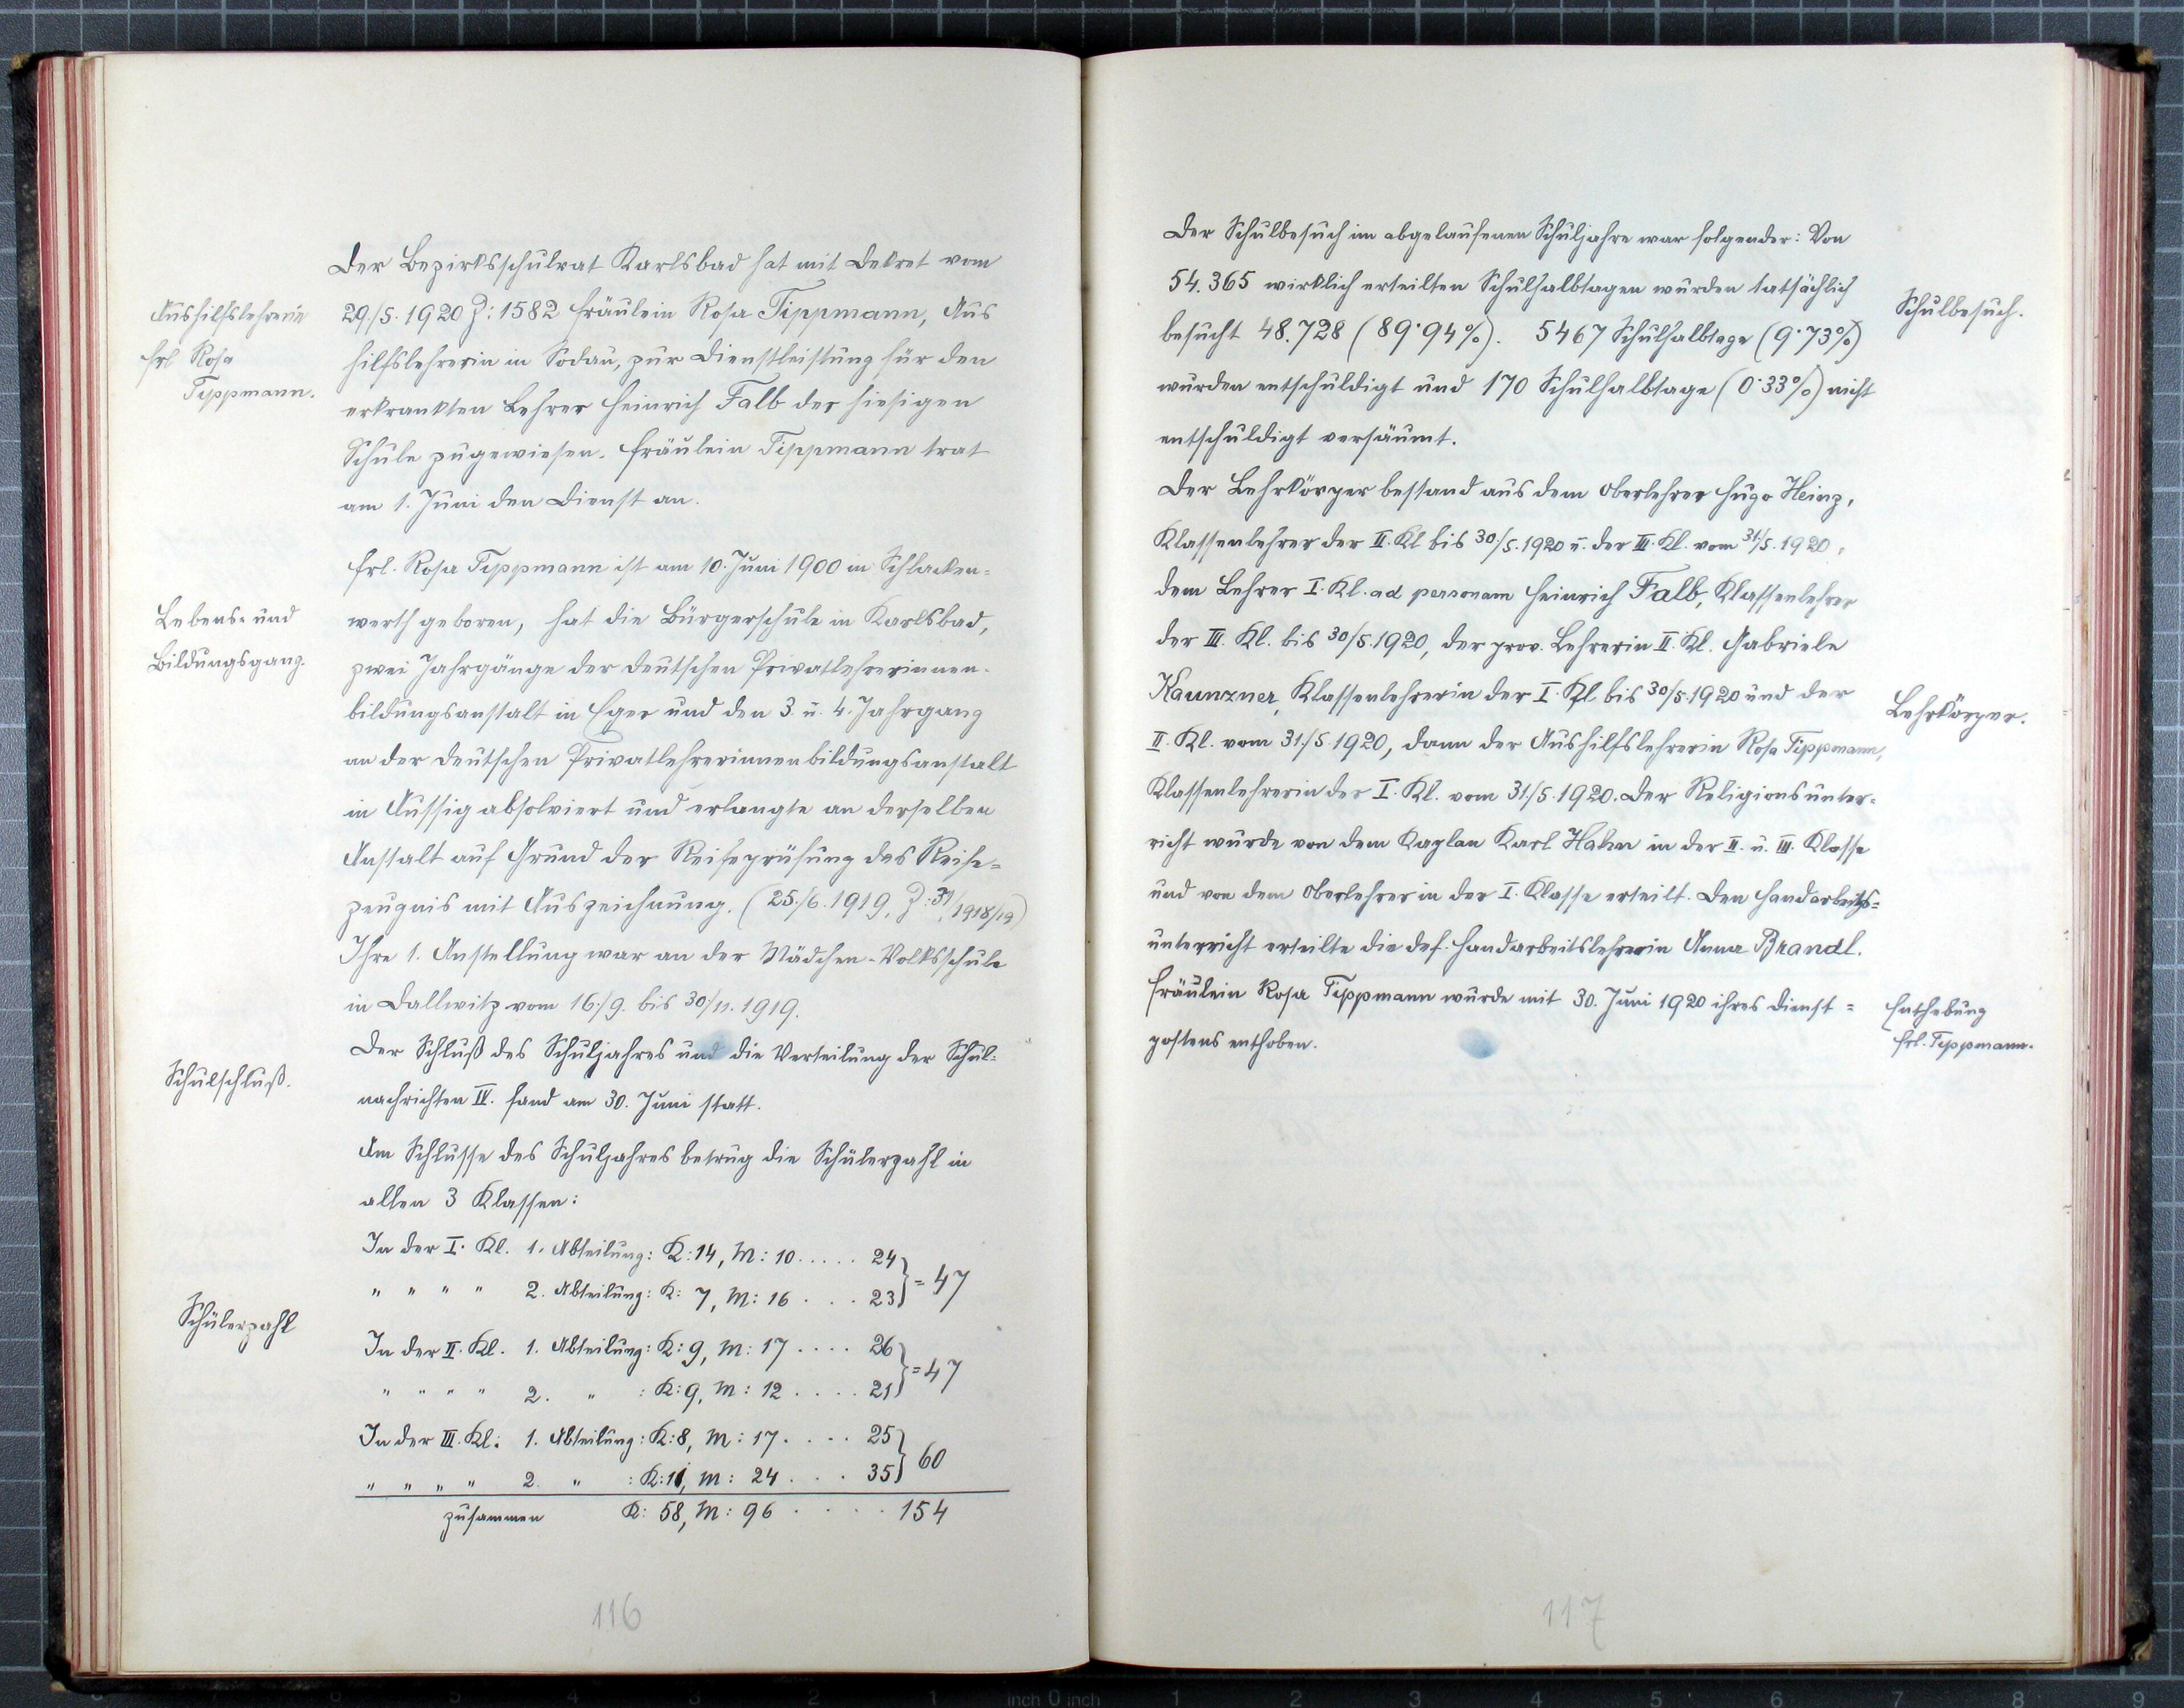 Der Bezirksschulrat Karlsbad hat mit Dekret vom
Aushilfslehrerin
29./5. 1920 Z: 1582 Fräulein Rosa Tippmann, Aus
Frl Rosa
hilfslehrerin in Sodau, zur Dienstleistung für den
Tippmann.
erkrankten Lehrer Heinrich Falb der hiesigen
Schule zugewiesen. Fräulein Tippmann trat
am 1. Juni den Dienst an.
Frl. Rosa Tippmann ist am 10. Juni 1900 in Schlacken=
Lebens- und
werth geboren, hat die Bürgerschule in Karlsbad,
Bildungsgang.
zwei Jahrgänge der deutschen Privatlehrerinnen-
bildungsanstalt in Eger und den 3. u. 4. Jahrgang
an der deutschen Privatlehrerinnenbildungsanstalt
in Aussig absolviert und erlangte an derselben
Anstalt auf Grund der Reifeprüfung das Reife=
zeugnis mit Auszeichnung. (25./6. 1919, Z: 31/1918/19)
Ihre 1. Anstellung war an der Mädchen-Volksschule
in Dallwitz vom 16./9. bis 30./11. 1919.
Der Schluß des Schuljahres und die Verteilung der Schul-
Schulschluß.
nachrichten IV. fand am 30. Juni statt.
Am Schlusse des Schuljahres betrug die Schülerzahl in
allen 3 Klassen:
In der I. Kl. 1. Abteilung: K: 14, M: 10 ..... 24
" " " " 2. Abteilung: K: 7, M: 16 . . . 23 } = 47
Schülerzahl
In der II. Kl. 1. Abteilung: K: 9, M: 17 .... 26
" " " " 2. " : K: 9, M: 12 .... 21 } = 47
In der III. Kl: 1. Abteilung: K: 8, M: 17 .... 25
" " " " 2. " : K: 11, M: 24 . . . 35 } 60
zusammen K: 58, M: 96 ..... 154
116
Der Schulbesuch im abgelaufenen Schuljahre war folgender: Von
54.365 wirklich erteilten Schulhalbtagen wurden tatsächlich
Schulbesuch.
besucht 48.728 (89·94%). 5467 Schulhalbtage (9·73%)
wurden entschuldigt und 170 Schulhalbtage (0·33%) nicht
entschuldigt versäumt.
Der Lehrkörper bestand aus dem Oberlehrer Hugo Heinz,
Klassenlehrer der II. Kl bis 30./5. 1920 u. der III. Kl. vom 31./5. 1920,
dem Lehrer I. Kl. ad personam Heinrich Falb, Klassenlehrer
der III. Kl. bis 30/5. 1920, der prov. Lehrerin II. Kl. Gabriele
Kaunzner, Klassenlehrerin der I. Kl. bis 30/5. 1920 und der
Lehrkörper.
II. Kl. vom 31./5. 1920, dann der Aushilfslehrerin Rosa Tippmann,
Klassenlehrerin der I. Kl. vom 31./5. 1920. Der Religionsunter-
richt wurde von dem Kaplan Karl Hahn in der II. u. III. Klasse
und von dem Oberlehrer in der I. Klasse erteilt. Den Handarbeits=
unterricht erteilte die def. Handarbeitslehrerin Anna Brandl.
Fräulein Rosa Tippmann wurde mit 30. Juni 1920 ihres Dienst=
Enthebung
postens enthoben.
Frl. Tippmann.
117